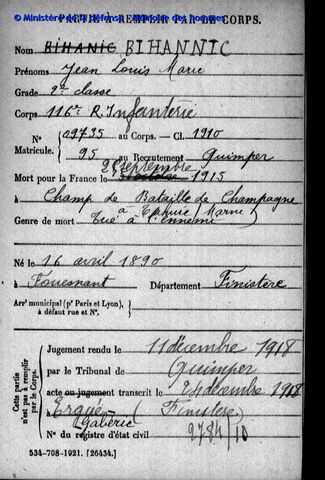 © Ministère de la défense - Mémoire des hommes
PARTIE À REMPLIR PAR LE CORPS.
Nom BIHANIC BIHANNIC
Prénoms Jean Louis Marie
Grade 2e classe
Corps 116e R. Infanterie
N° 09735 au Corps. — Cl. 1910
Matricule. 95 au Recrutement Quimper
Mort pour la France le 25 septembre 1915
à Champ de Bataille de Champagne
à Tahure (Marne)
Genre de mort Tué à l'ennemi
Né le 16 avril 1890
à Fouesnant Département Finistère
Arrt municipal (pr Paris et Lyon),
à défaut rue et N°.
Cette partie n'est pas à remplir par le Corps.
Jugement rendu le 11 décembre 1918
par le Tribunal de Quimper
acte ou jugement transcrit le 24 décembre 1918
à Ergué-Gabéric (Finistère)
N° du registre d'état civil 2784/10
534-708-1921. [26434.]